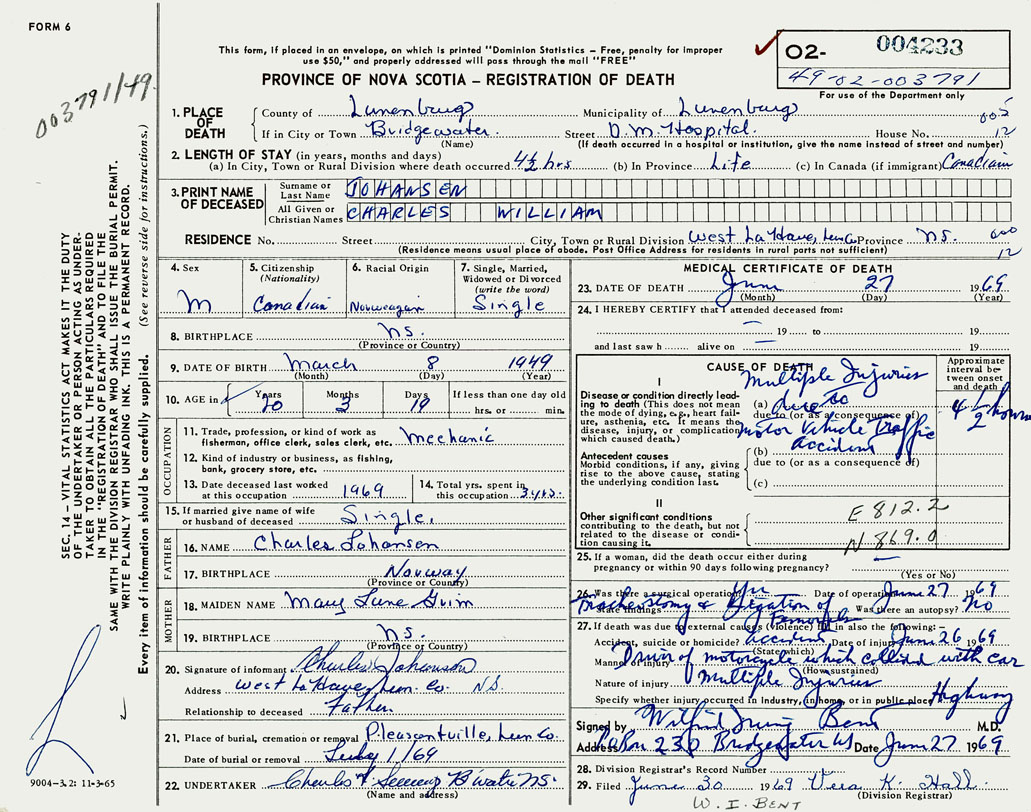 FORM 6
003791/49
This form, if placed in an envelope, on which is printed "Dominion Statistics – Free, penalty for improper
use $50," and properly addressed will pass through the mail "FREE"
PROVINCE OF NOVA SCOTIA – REGISTRATION OF DEATH
O2- 004233
49-02-003791
For use of the Department only
1. PLACE OF DEATH County of Lunenburg Municipality of Lunenburg 005
If in City or Town Bridgewater Street D.M. Hospital. House No. 12
(Name) (If death occurred in a hospital or institution, give the name instead of street and number)
2. LENGTH OF STAY (in years, months and days)
(a) In City, Town or Rural Division where death occurred 4½ hrs (b) In Province Life (c) In Canada (if immigrant) Canadian
3. PRINT NAME OF DECEASED Surname or Last Name JOHANSEN
All Given or Christian Names CHARLES WILLIAM
RESIDENCE No. Street City, Town or Rural Division West La Have, Lun Co. Province N.S. 000
(Residence means usual place of abode. Post Office Address for residents in rural parts not sufficient) 12
4. Sex M
5. Citizenship (Nationality) Canadian
6. Racial Origin Norweagain
7. Single, Married, Widowed or Divorced (write the word) Single
8. BIRTHPLACE N.S.
(Province or Country)
9. DATE OF BIRTH March 8 1949
(Month) (Day) (Year)
10. AGE in Years 20 Months 3 Days 19 If less than one day old hrs. or min.
OCCUPATION
11. Trade, profession, or kind of work as fisherman, office clerk, sales clerk, etc. Mechanic
12. Kind of industry or business, as fishing, bank, grocery store, etc.
13. Date deceased last worked at this occupation 1969
14. Total yrs. spent in this occupation 3 yrs.
15. If married give name of wife or husband of deceased Single.
FATHER
16. NAME Charles Johansen
17. BIRTHPLACE Norway
(Province or Country)
MOTHER
18. MAIDEN NAME Mary Jane
19. BIRTHPLACE N.S.
(Province or Country)
20. Signature of informant Charles Johansen
Address West La Have, Lun. Co. N.S.
Relationship to deceased Father.
21. Place of burial, cremation or removal Pleasantville, Lun Co.
Date of burial or removal July 1/69
22. UNDERTAKER Charles B'water NS.
(Name and address)
MEDICAL CERTIFICATE OF DEATH
23. DATE OF DEATH June 27 1969
(Month) (Day) (Year)
24. I HEREBY CERTIFY that I attended deceased from:
19 to 19
and last saw h alive on 19
CAUSE OF DEATH
Approximate interval between onset and death
I
Disease or condition directly leading to death (This does not mean the mode of dying, e.g., heart failure, asthenia, etc. It means the disease, injury, or complication which caused death.)
(a) Multiple Injuries 4 1/2 hours
due to (or as a consequence of)
due to
Motor Vehicle Traffic
Accident
Antecedent causes
Morbid conditions, if any, giving rise to the above cause, stating the underlying condition last.
(b)
due to (or as a consequence of)
(c)
II
Other significant conditions contributing to the death, but not related to the disease or condition causing it.
E 812.2
N 869.0
25. If a woman, did the death occur either during pregnancy or within 90 days following pregnancy?
(Yes or No)
26. Was there a surgical operation Yes Date of operation June 27 1969
State findings Tracheostomy & Ligation of Femorals Was there an autopsy? No
27. If death was due to external causes (violence) fill in also the following: –
Accident, suicide or homicide? Accident Date of injury June 26 1969
(State which)
Manner of injury Driver of motorcycle which collided with car
(How sustained)
Nature of injury Multiple Injuries
Specify whether injury occurred in industry, in home, or in public place Highway
Signed by Wilfrid Irving Bent M.D.
Address PO Box 230 Bridgewater NS Date June 27 1969
28. Division Registrar's Record Number
29. Filed June 30 1969 Vera K. Hall
(Division Registrar)
W. I. BENT
SEC. 14 – VITAL STATISTICS ACT MAKES IT THE DUTY
OF THE UNDERTAKER OR PERSON ACTING AS UNDER-
TAKER TO OBTAIN ALL THE PARTICULARS REQUIRED
IN THE "REGISTRATION OF DEATH" AND TO FILE THE
SAME WITH THE DIVISION REGISTRAR WHO SHALL ISSUE THE BURIAL PERMIT.
WRITE PLAINLY WITH UNFADING INK. THIS IS A PERMANENT RECORD.
Every item of information should be carefully supplied. (See reverse side for instructions.)
9004-3.2: 11-3-65